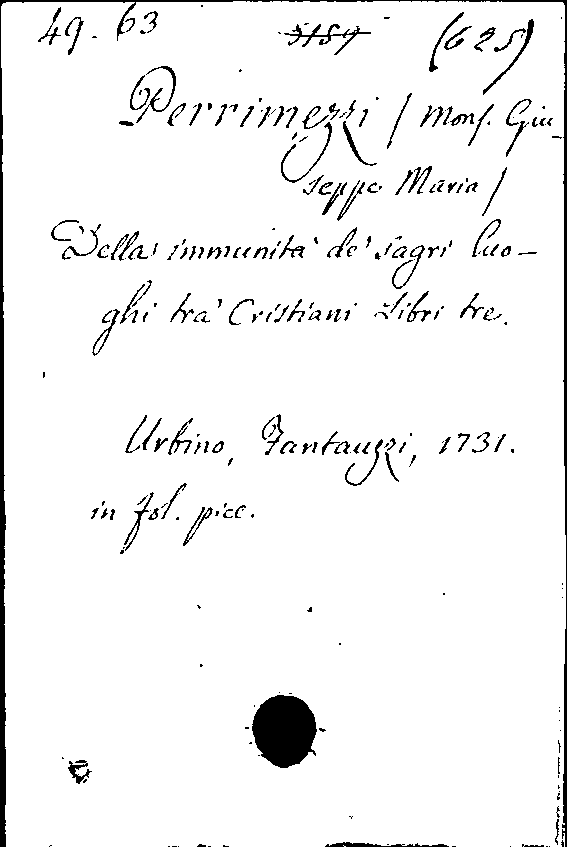 49. 63 5189 (625)
Perrimezzi / Mons. Giu-
seppe Maria /
Della immunità de' sagri luo-
ghi tra' Cristiani Libri tre.
Urbino, Fantauzzi, 1731.
in fol. picc.